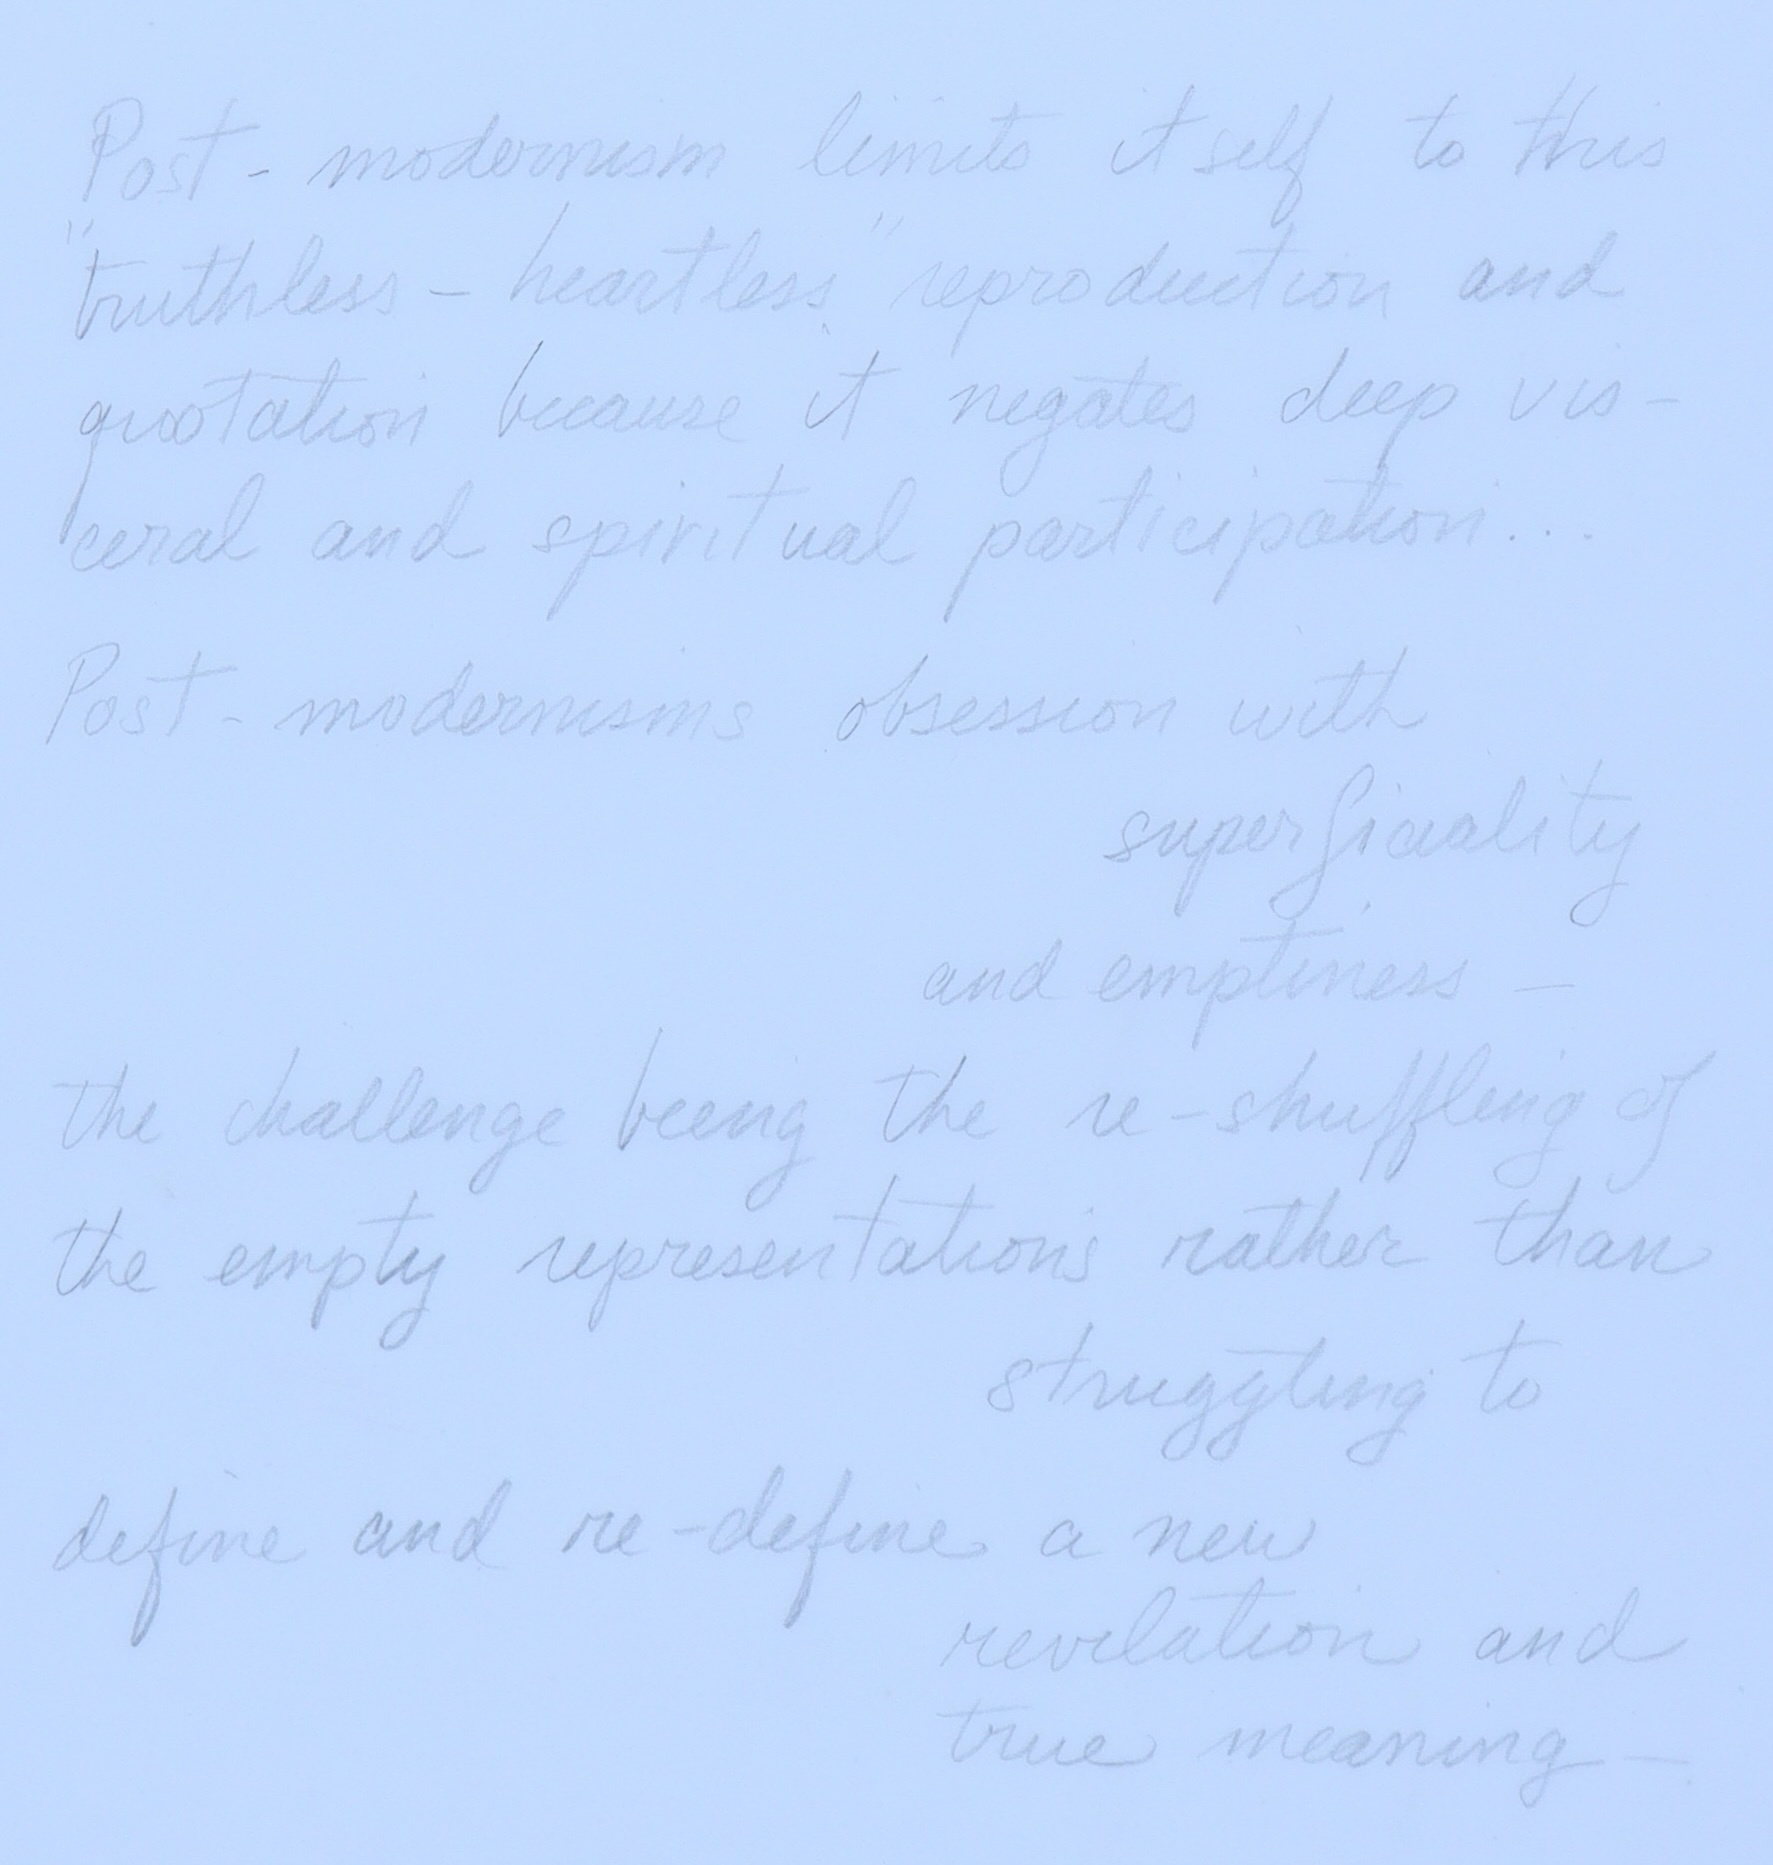 Post - modernism limits itself to this
"truthless - heartless" reproduction and
qrotation because it negates deep vis-
ceral and spiritual participation...
Post - modernisms obsession with
superficiality
and emptiness -
the challenge being the re-shuffling of
the empty representations rather than
struggling to
define and re-define a new
revelation and
true meaning -